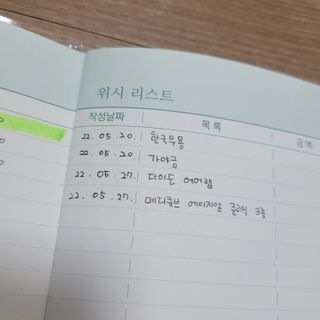 위시 리스트
작성날짜 목록 금액
22.05.20. 한국무용
22.05.20 가야금
22.05.27. 다이슨 에어랩
22.05.27. 메디큐브 에이지알 클리식 3종